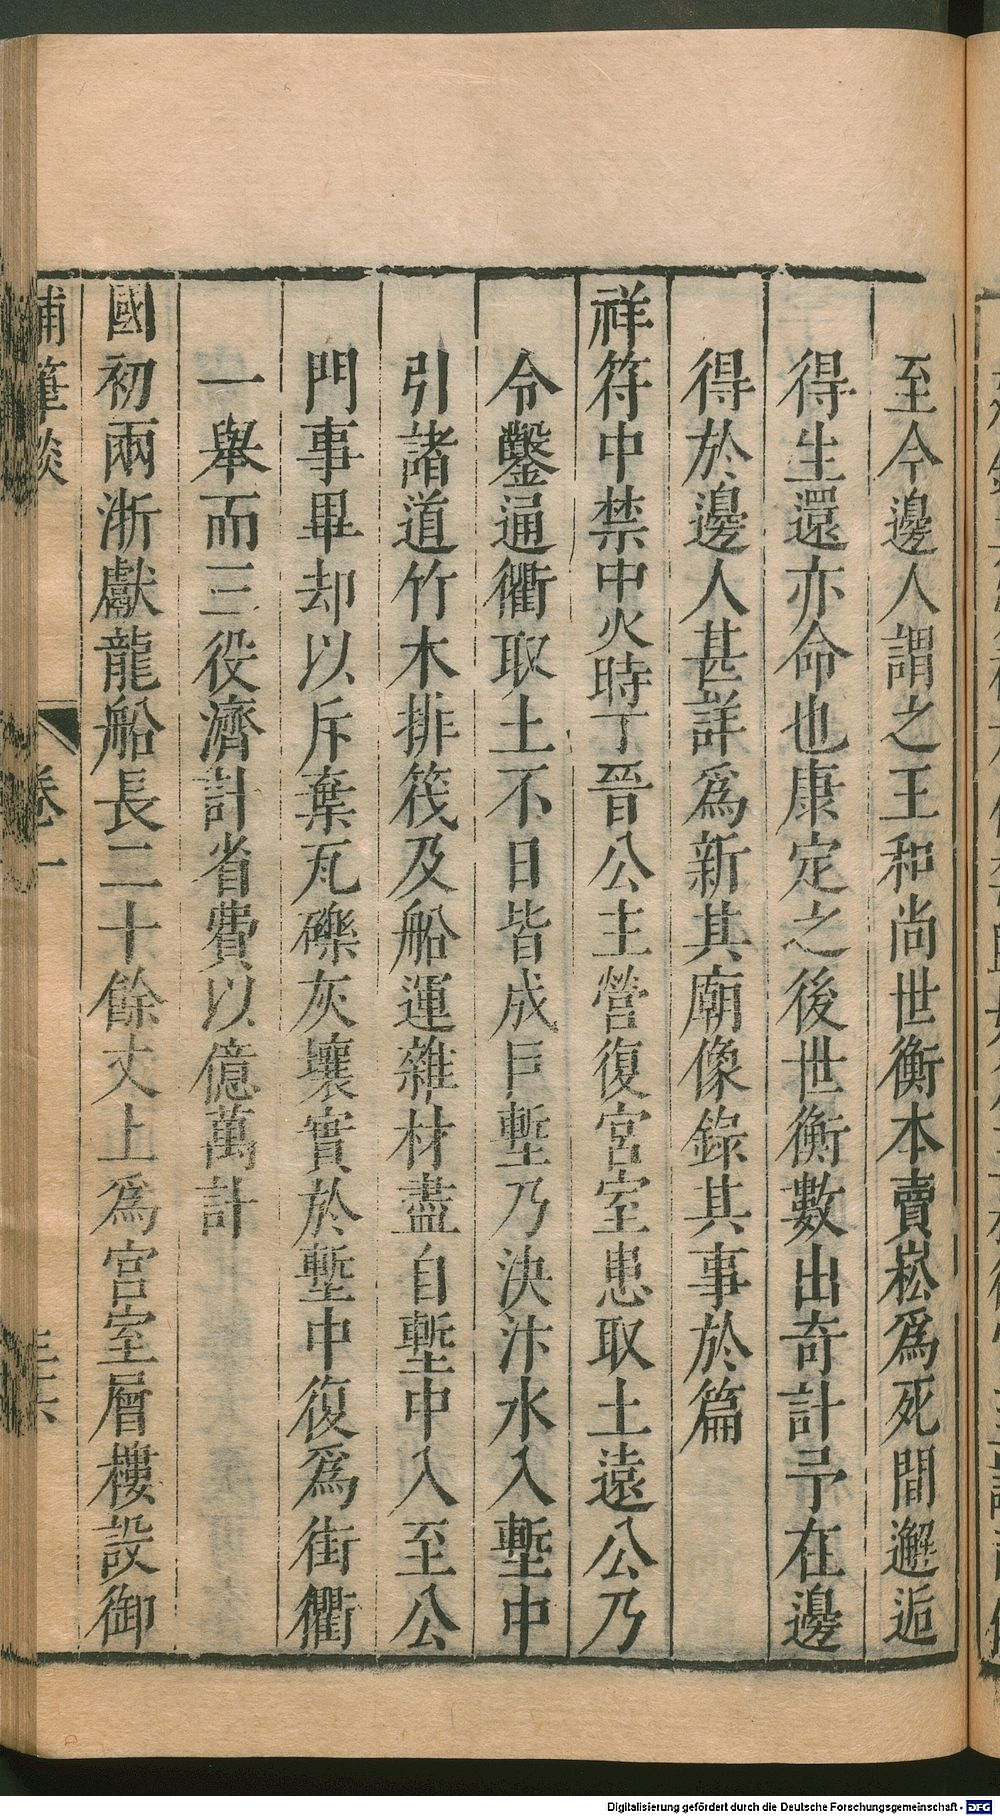 至今邊人謂之王和尚世衡本賣崧爲死間邂逅
得生還亦命也康定之後世衡數出奇計予在邊
得於邊人甚詳爲新其廟像錄其事於篇
祥符中禁中火時丁晉公主營復宮室患取土遠公乃
令鑿通衢取土不日皆成巨塹乃決汴水入塹中
引諸道竹木排筏及船運雜材盡自塹中入至公
門事畢却以斥棄瓦礫灰壤實於塹中復爲街衢
一舉而三役濟計省費以億萬計
國初兩浙獻龍船長二十餘丈上爲宮室層樓設御
補筆談 卷一
Digitalisierung gefördert durch die Deutsche Forschungsgemeinschaft - DFG